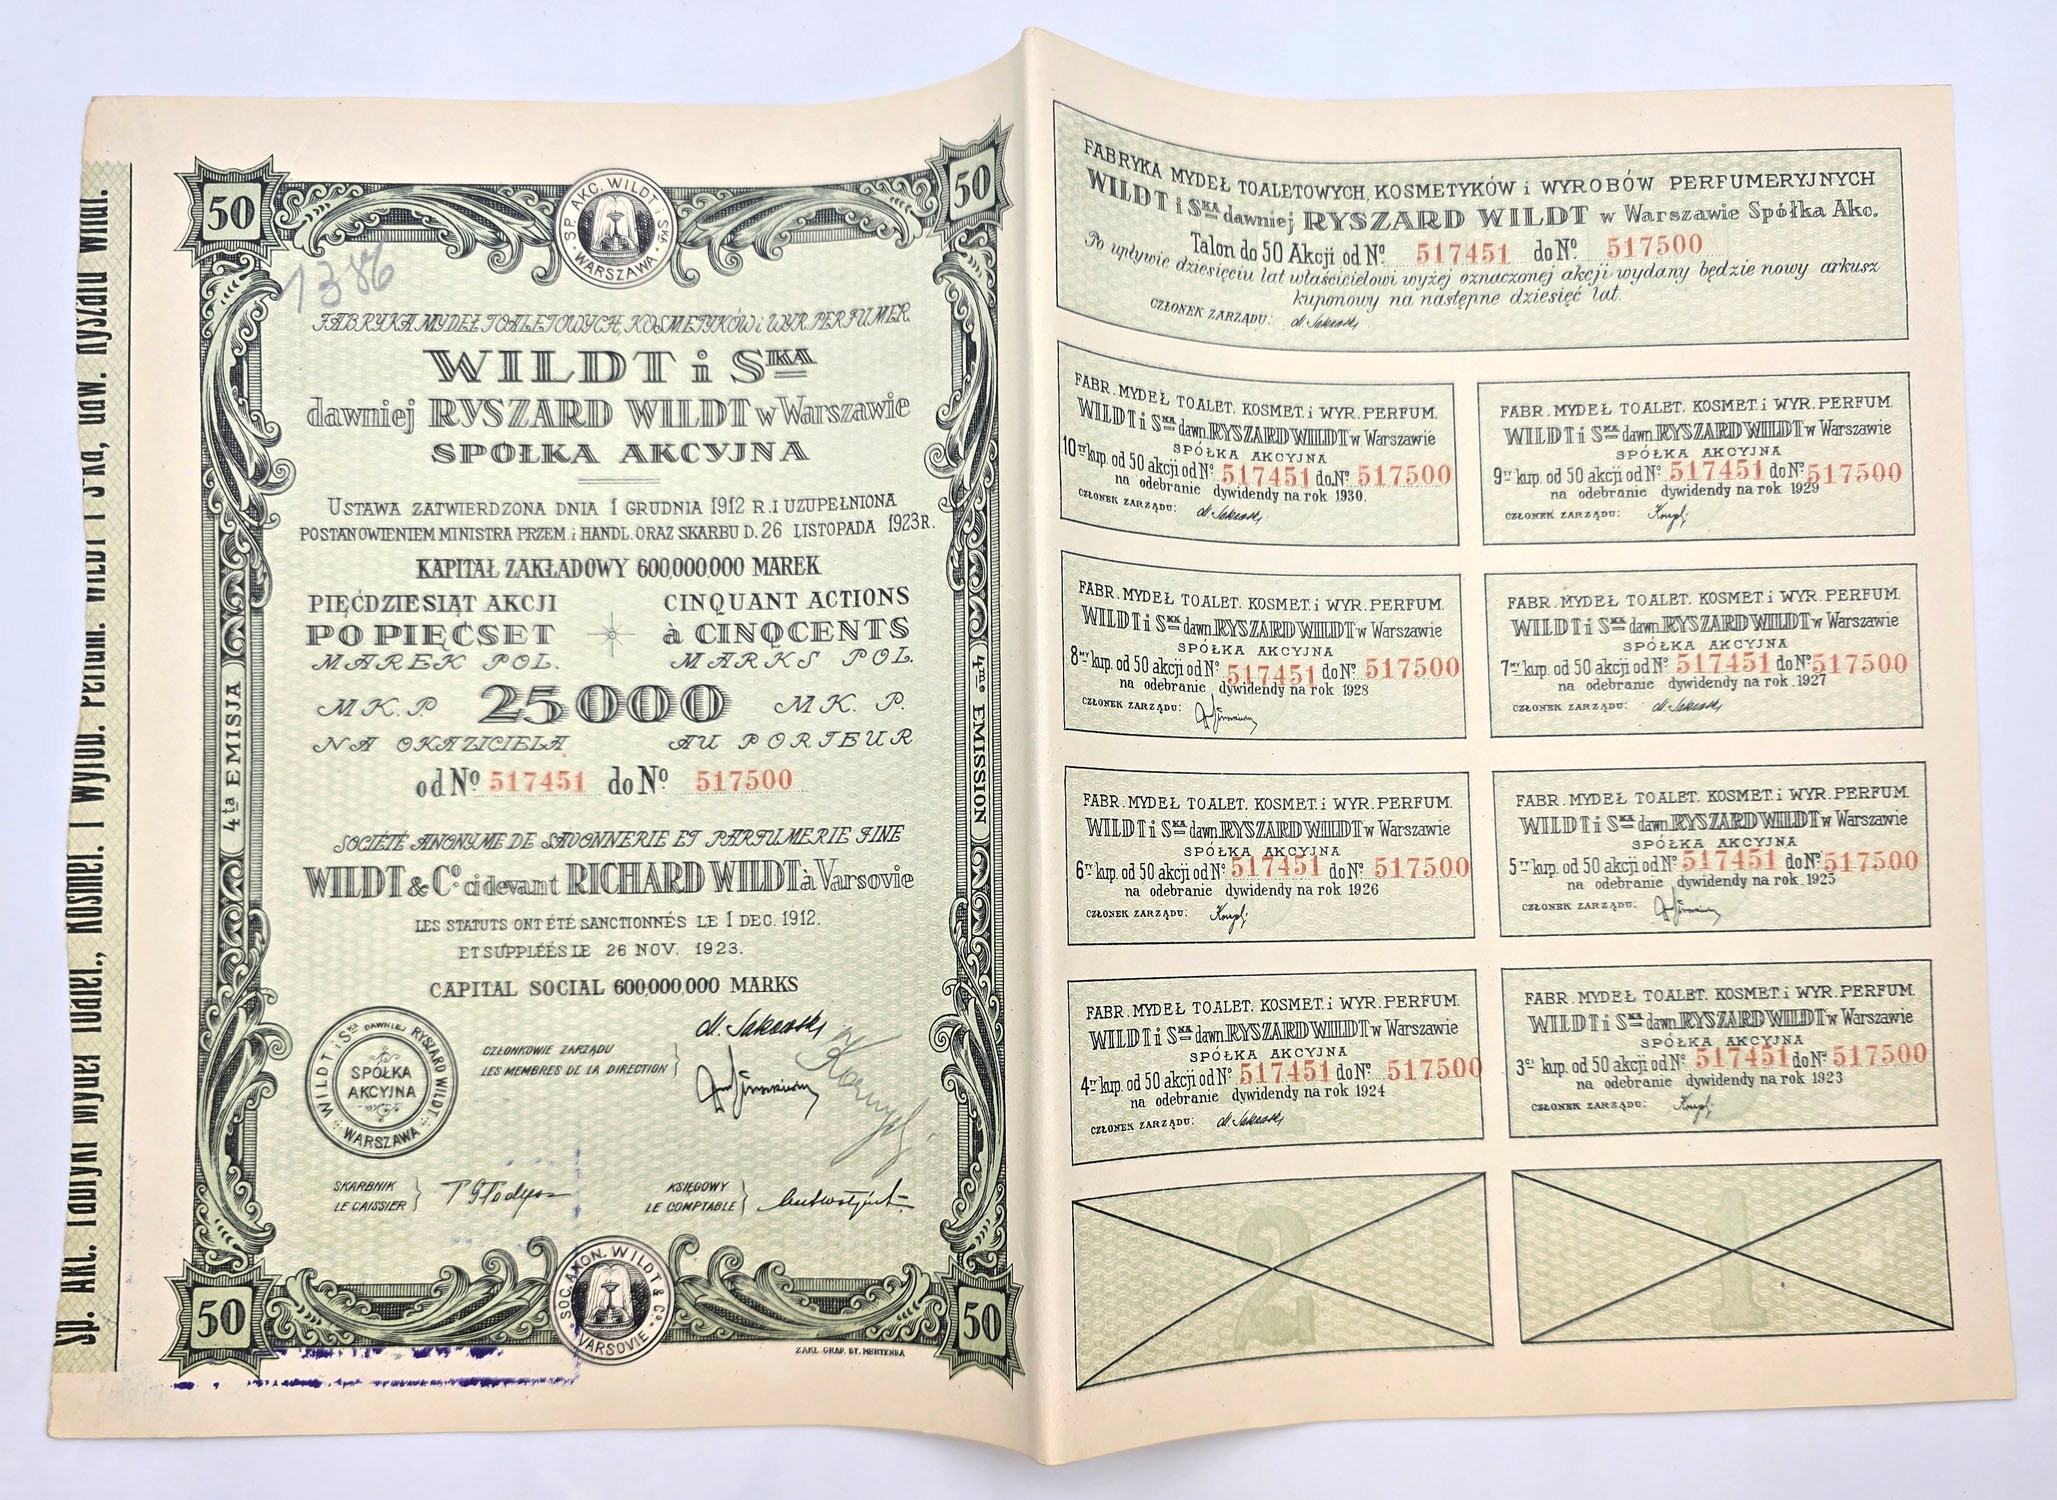 Sp. Akc. Fabryki Mydeł Toalet., Kosmet. i Wyrob. Perfum. WILDT i S-ka, daw. Ryszard Wildt.
50
50
SP. AKC. WILDT i SKA
WARSZAWA
1386
FABRYKA MYDEŁ TOALETOWYCH, KOSMETYKÓW i WYR. PERFUMER.
WILDT i SKA
dawniej RYSZARD WILDT w Warszawie
SPÓŁKA AKCYJNA
USTAWA ZATWIERDZONA DNIA 1 GRUDNIA 1912 R. I UZUPEŁNIONA
POSTANOWIENIEM MINISTRA PRZEM. i HANDL. ORAZ SKARBU D. 26 LISTOPADA 1923 R.
KAPITAŁ ZAKŁADOWY 600,000,000 MAREK
PIĘĆDZIESIĄT AKCJI
PO PIĘĆSET
MAREK POL.
CINQUANT ACTIONS
à CINQCENTS
MARKS POL.
MK. P. 25000 MK. P.
NA OKAZICIELA AU PORTEUR
od No 517451 do No 517500
SOCIÉTÉ ANONYME DE SAVONNERIE ET PARFUMERIE FINE
WILDT & Co ci devant RICHARD WILDT à Varsovie
LES STATUTS ONT ÉTÉ SANCTIONNÉS LE 1 DEC. 1912.
ET SUPPLÉÉS LE 26 NOV. 1923.
CAPITAL SOCIAL 600,000,000 MARKS
4ta EMISJA
4me EMISSION
WILDT i SKA DAWNIEJ RYSZARD WILDT
SPÓŁKA
AKCYJNA
WARSZAWA
CZŁONKOWIE ZARZĄDU
LES MEMBRES DE LA DIRECTION
SKARBNIK
LE CAISSIER
KSIĘGOWY
LE COMPTABLE
50
50
SOC. ANON. WILDT & Co
VARSOVIE
ZAKŁ. GRAF. BT. MERTENBA
FABRYKA MYDEŁ TOALETOWYCH, KOSMETYKÓW i WYROBÓW PERFUMERYJNYCH
WILDT i SKA dawniej RYSZARD WILDT w Warszawie Spółka Akc.
Talon do 50 Akcji od No 517451 do No 517500
Po upływie dziesięciu lat właścicielowi wyżej oznaczonej akcji wydany będzie nowy arkusz
kuponowy na następne dziesięć lat.
CZŁONEK ZARZĄDU:
FABR. MYDEŁ TOALET. KOSMET. i WYR. PERFUM.
WILDT i SKA dawn. RYSZARD WILDT w Warszawie
SPÓŁKA AKCYJNA
10ty kup. od 50 akcji od No 517451 do No 517500
na odebranie dywidendy na rok 1930.
CZŁONEK ZARZĄDU:
FABR. MYDEŁ TOALET. KOSMET. i WYR. PERFUM.
WILDT i SKA dawn. RYSZARD WILDT w Warszawie
SPÓŁKA AKCYJNA
9ty kup. od 50 akcji od No 517451 do No 517500
na odebranie dywidendy na rok 1929
CZŁONEK ZARZĄDU:
FABR. MYDEŁ TOALET. KOSMET. i WYR. PERFUM.
WILDT i SKA dawn. RYSZARD WILDT w Warszawie
SPÓŁKA AKCYJNA
8my kup. od 50 akcji od No 517451 do No 517500
na odebranie dywidendy na rok 1928
CZŁONEK ZARZĄDU:
FABR. MYDEŁ TOALET. KOSMET. i WYR. PERFUM.
WILDT i SKA dawn. RYSZARD WILDT w Warszawie
SPÓŁKA AKCYJNA
7my kup. od 50 akcji od No 517451 do No 517500
na odebranie dywidendy na rok 1927
CZŁONEK ZARZĄDU:
FABR. MYDEŁ TOALET. KOSMET. i WYR. PERFUM.
WILDT i SKA dawn. RYSZARD WILDT w Warszawie
SPÓŁKA AKCYJNA
6ty kup. od 50 akcji od No 517451 do No 517500
na odebranie dywidendy na rok 1926
CZŁONEK ZARZĄDU:
FABR. MYDEŁ TOALET. KOSMET. i WYR. PERFUM.
WILDT i SKA dawn. RYSZARD WILDT w Warszawie
SPÓŁKA AKCYJNA
5ty kup. od 50 akcji od No 517451 do No 517500
na odebranie dywidendy na rok 1925
CZŁONEK ZARZĄDU:
FABR. MYDEŁ TOALET. KOSMET. i WYR. PERFUM.
WILDT i SKA dawn. RYSZARD WILDT w Warszawie
SPÓŁKA AKCYJNA
4ty kup. od 50 akcji od No 517451 do No 517500
na odebranie dywidendy na rok 1924
CZŁONEK ZARZĄDU:
FABR. MYDEŁ TOALET. KOSMET. i WYR. PERFUM.
WILDT i SKA dawn. RYSZARD WILDT w Warszawie
SPÓŁKA AKCYJNA
3ci kup. od 50 akcji od No 517451 do No 517500
na odebranie dywidendy na rok 1923
CZŁONEK ZARZĄDU:
2
1